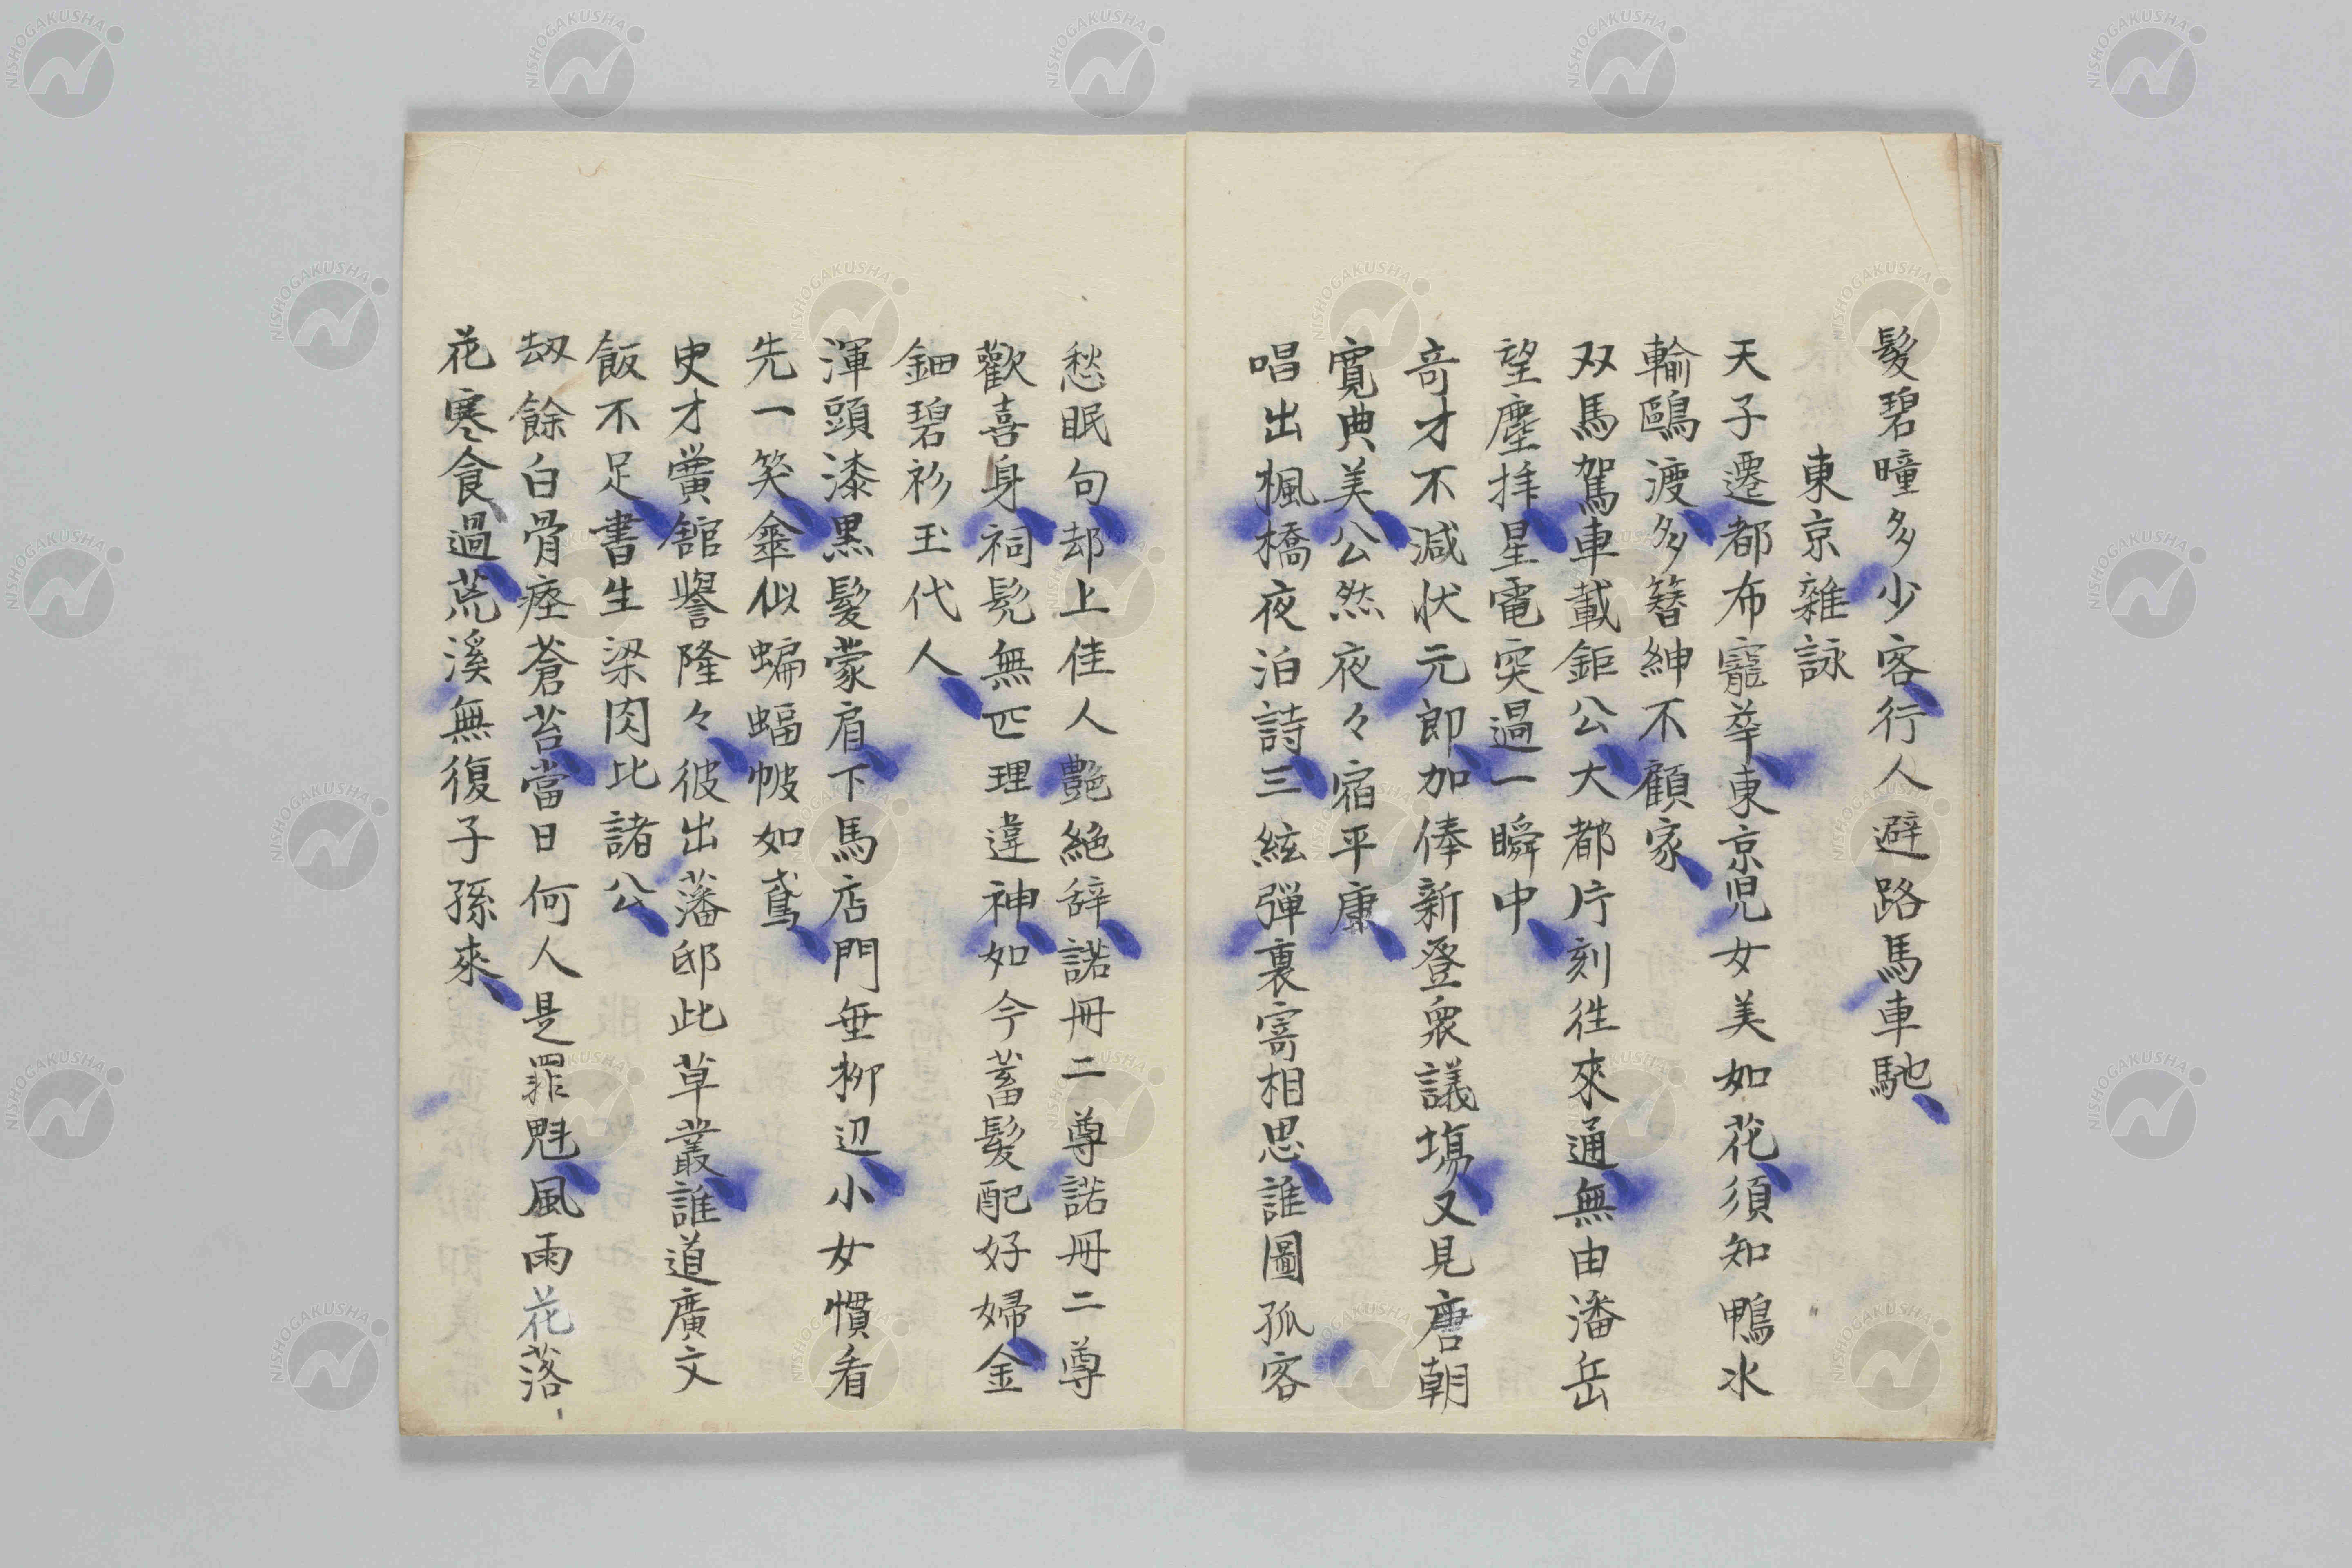 髮碧瞳多少客行人避路馬車馳
東京雜詠
天子遷都布寵華東京児女美如花須知鴨水
輸鷗渡多簪紳不顧家
双馬駕車載鉅公大都片刻徃來通無由潘岳
望塵拝星電突過一瞬中
竒才不減状元郎加俸新登衆議塲又見唐朝
寛典美公然夜々宿平康
唱出楓橋夜泊詩三絃彈裏寄相思誰圖孤客
愁眠句却上佳人艶絶辞諾冊二尊諾冊二尊
歡喜身祠髡無匹理違神如今蓄髮配好婦金
鈿碧衫玉代人
渾頭漆黒髮蒙肩下馬店門垂柳辺小女慣看
先一笑傘似蝙蝠帔如鳶
史才黌舘譽隆々彼出藩邸此草叢誰道廣文
飯不足書生梁肉比諸公
刼餘白骨瘞蒼苔當日何人是罪魁風雨花落
花寒食過荒溪無復子孫來
NISHOGAKUSHA